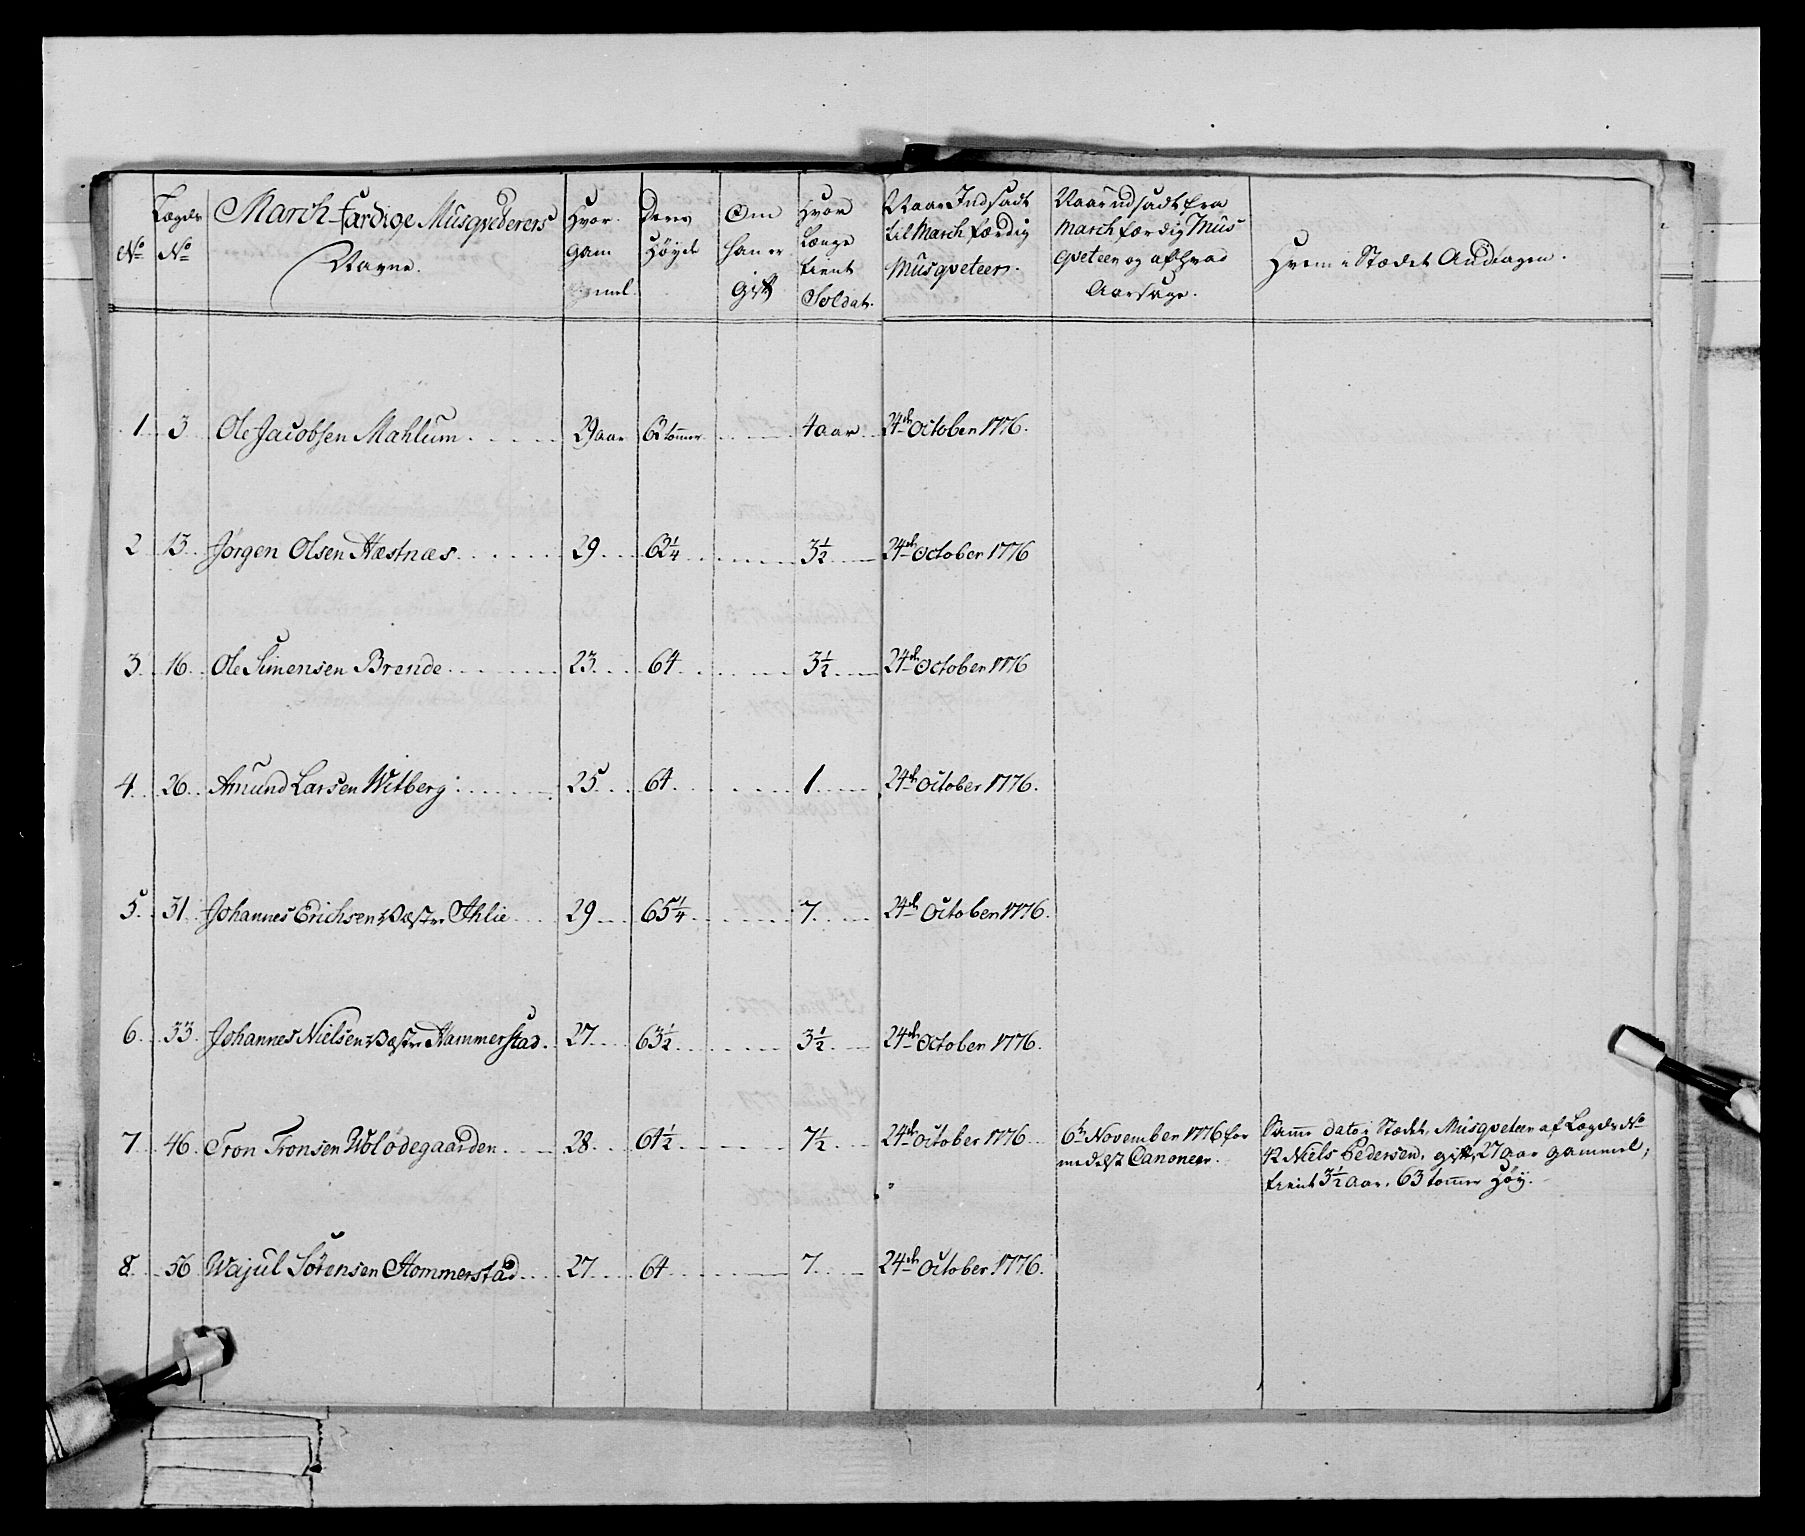 No
Lægds No
March-færdige Musqveterers Navne.
Hvor gam mel.
Deres Høyde
Om han er Gift
Hvor Længe tient Soldat.
Naar Indsadt til March færdig Musqveteer.
Naar udsadt fra March færdig Mus qveteer og af hvad Aarsage.
Hvem i Stædet Andtagen.
1 3 Ole Jacobsen Mahlum 29 aar 62 tommer 4 aar 24de October 1776.
2 13 Jørgen Olsen Næstnæs 29 62 1/4 3 1/2 24de October 1776
3 16 Ole Simensen Brende 23 64 3 1/2 24de October 1776
4 26 Amund Larsen Witberg 25 64 1 24de October 1776.
5 31 Johannes Erichsen Væstre Ihlie 29 65 1/4 7 24de October 1776.
6 33 Johannes Nielsen Væstre Hammerstad. 27 63 1/2 3 1/2 24de October 1776.
7 46 Tron Tronsen Ulødegaarden 28 64 1/2 7 1/2 24de October 1776 6te November 1776 for Samme dato i Stædet, Musqveteer af Lægds No
medelst Canoneer. 42 Niels Pedersen, gift, 27 aar gammel,
tient 3 1/2 aar, 63 tommer høy.
8 56 Wajul Sørensen Hommerstad 27 64 7 24de October 1776.